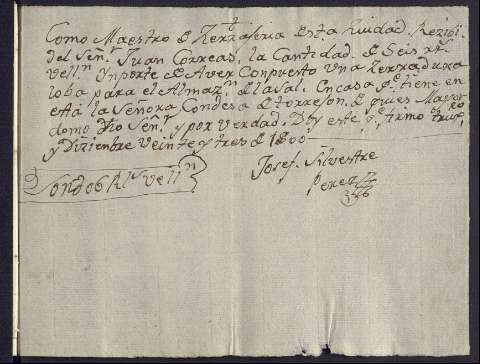 Como Maestro de Zerrageria de esta Ziudad Rezivi
del Señ.r Juan Correas, la Cantidad de Seis r.s
Vell.n Ynporte de Aver Conpuesto Una Zerradura
loba para el Almaz.n de la Sal. En casa q.e tiene en
esta la Señora Condesa de torre son, de quien es Mayor
domo dho Señ.r y por Verdad. Doy este q.e firmo
y Diziembre Veinte y tres de 1800
Josef Silvestre
Perez
Son 006 R.s Vell.n